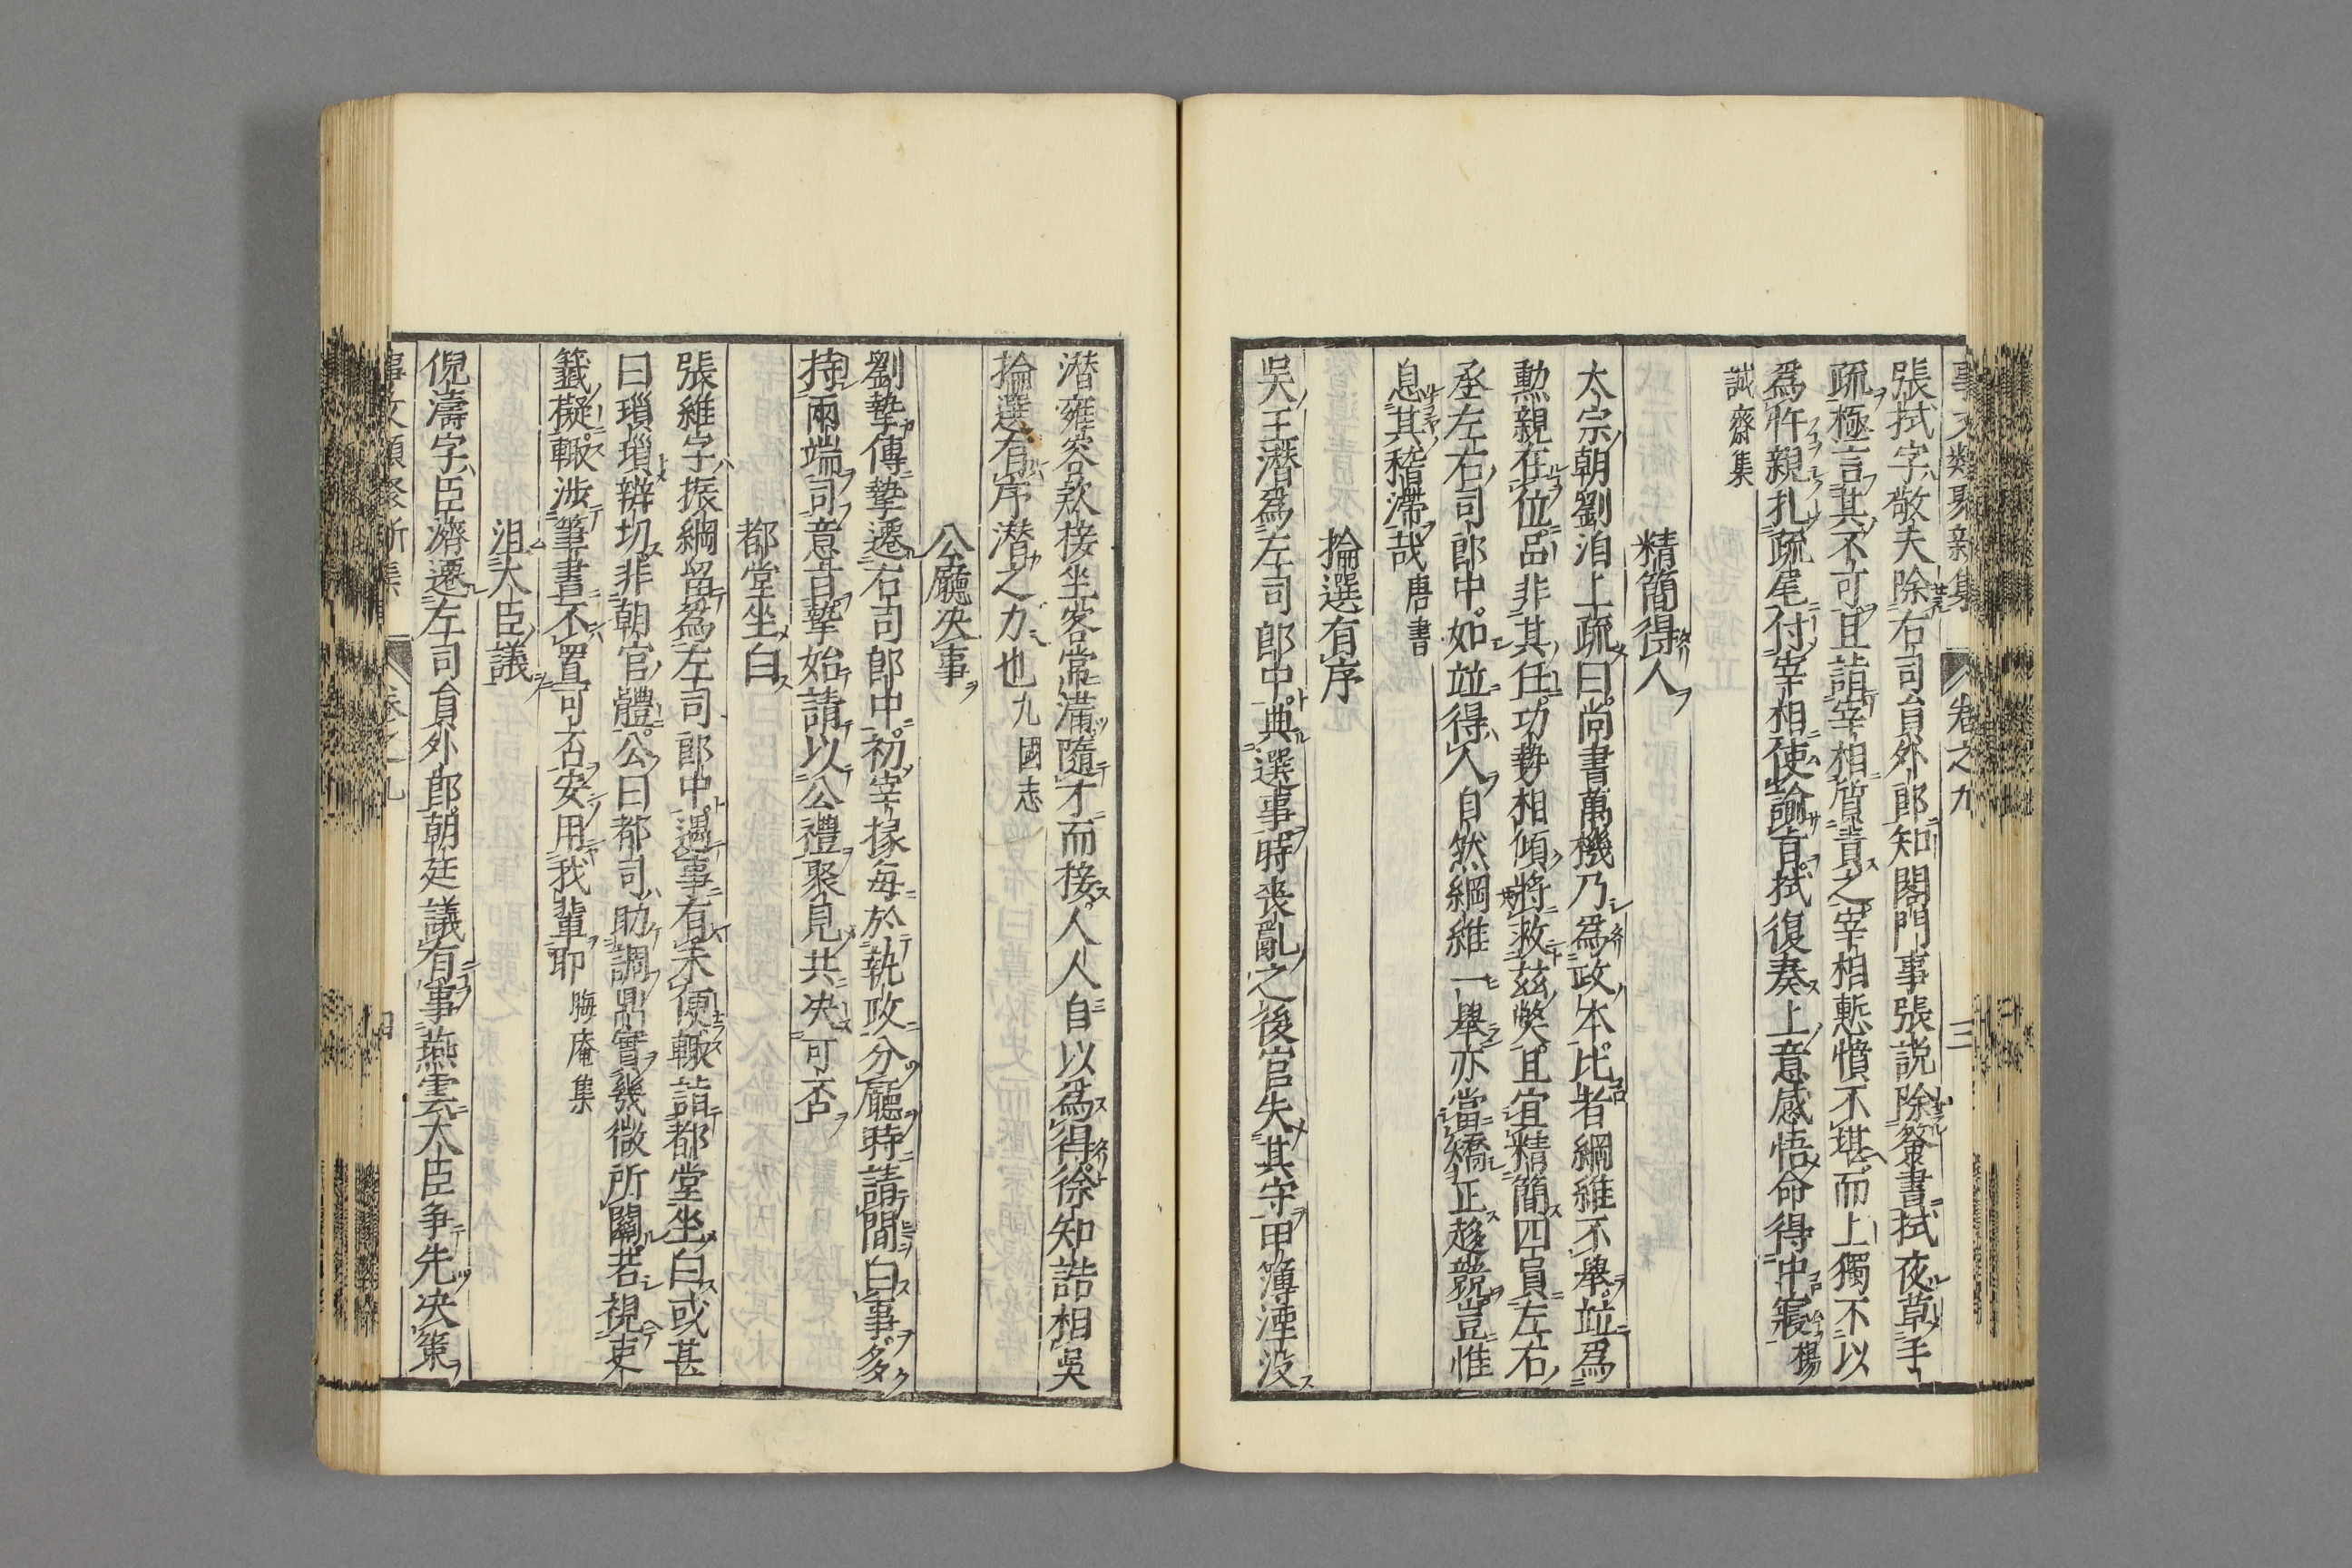 事文類聚新集 卷之九 三
張拭字敬夫除右司員外郎知閣門事張説除簽書拭夜草手
疏極言其不可且詣宰相質責之宰相慙憤不堪而上獨不以
爲忤親扎疏尾付宰相使諭旨拭復奏上意感悟命得中寢楊
誠齋集
精簡得人
太宗朝劉洎上疏曰尚書萬機乃爲政本比者綱維不舉並爲
勲親在位品非其任功勢相傾將救茲獘且宜精簡四員左右
丞左右司郎中如並得人自然綱維一舉亦當矯正趍競豈惟
息其稽滯哉唐書
掄選有序
吳王潛爲左司郎中典選事時丧亂之後官失其守甲簿湮没
潛雍容欵接坐客常滿隨才而接人人自以爲得徐知誥相吳
掄選有序潛之力也九國志
公廳决事
劉摯傳摯遷右司郎中初宰掾每於執政分廳時請間白事多
持兩端司意旨摯始請以公禮聚見共决可否
都堂坐白
張維字振綱留爲左司郎中遇事有未便輙詣都堂坐白或甚
曰瑣瑣辨切非朝官體公曰都司助調鼎實幾微所關若視吏
籤擬輙涉筆書不置可否安用我輩耶晦庵集
沮大臣議
倪濤字巨濟遷左司員外郎朝廷議有事燕雲大臣争先决策
事文類聚新集 卷之九 四